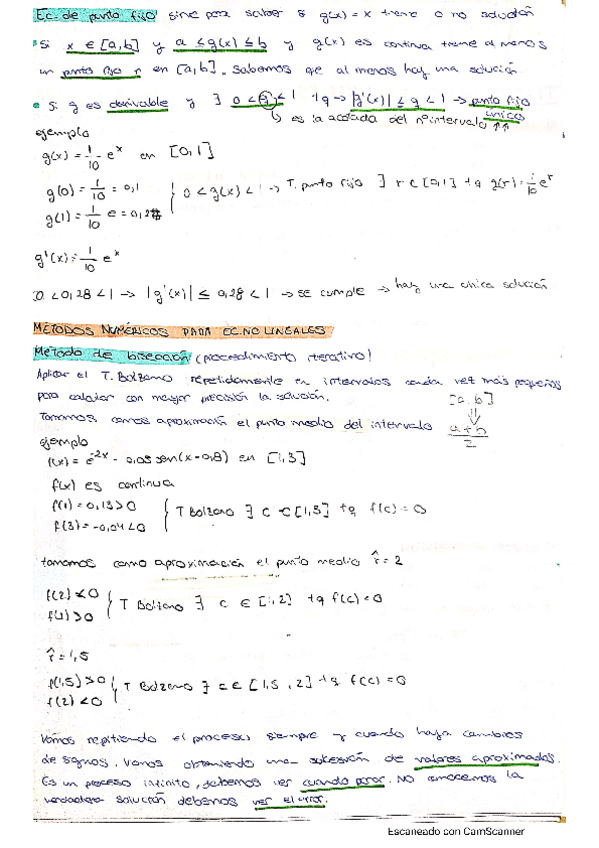 Ec. de punto fijo sirve para saber si g(x) = x tiene o no solución
• si x ∈ [a,b] y a ≤ g(x) ≤ b y g(x) es continua tiene al menos
un punto fijo r en [a,b]. Sabemos que al menos hay una solución
• Si g es derivable y ∃ 0 < g < 1 tq → |g'(x)| ≤ g < 1 → punto fijo único
↳ es la acotada del nº intervalo ↑↑
ejemplo
g(x) = 1/10 e^x en [0,1]
g(0) = 1/10 = 0,1
g(1) = 1/10 e = 0,27
0 < g(x) < 1 → T. punto fijo ∃ r ∈ [0,1] tq g(r) = 1/10 e^r
g'(x) = 1/10 e^x
0 < 0,28 < 1 → |g'(x)| ≤ 0,28 < 1 → se cumple → hay una única solución
MÉTODOS NUMÉRICOS PARA EC. NO LINEALES
Método de bisección (procedimiento iterativo)
Aplicar el T. Bolzano repetidamente en intervalos cada vez más pequeños
para calcular con mayor precisión la solución. [a,b]
Tomamos como aproximación el punto medio del intervalo ⇓ a+b/2
ejemplo
f(x) = e^-2x - 0,05 sen(x-0,8) en [1,3]
f(x) es continua
f(1) = 0,13 > 0
f(3) = -0,04 < 0
T Bolzano ∃ c ∈ [1,3] tq f(c) = 0
tomamos como aproximación el punto medio r̂ = 2
f(2) < 0
f(1) > 0
T Bolzano ∃ c ∈ [1,2] tq f(c) = 0
r̂ = 1,5
f(1,5) > 0
f(2) < 0
T Bolzano ∃ c ∈ [1,5 , 2] tq f(c) = 0
Vamos repitiendo el proceso, siempre y cuando haya cambios
de signos, vamos obteniendo una sucesión de valores aproximados.
Es un proceso infinito, debemos ver cuando parar. No conocemos la
verdadera solución debemos ver el error.
Escaneado con CamScanner